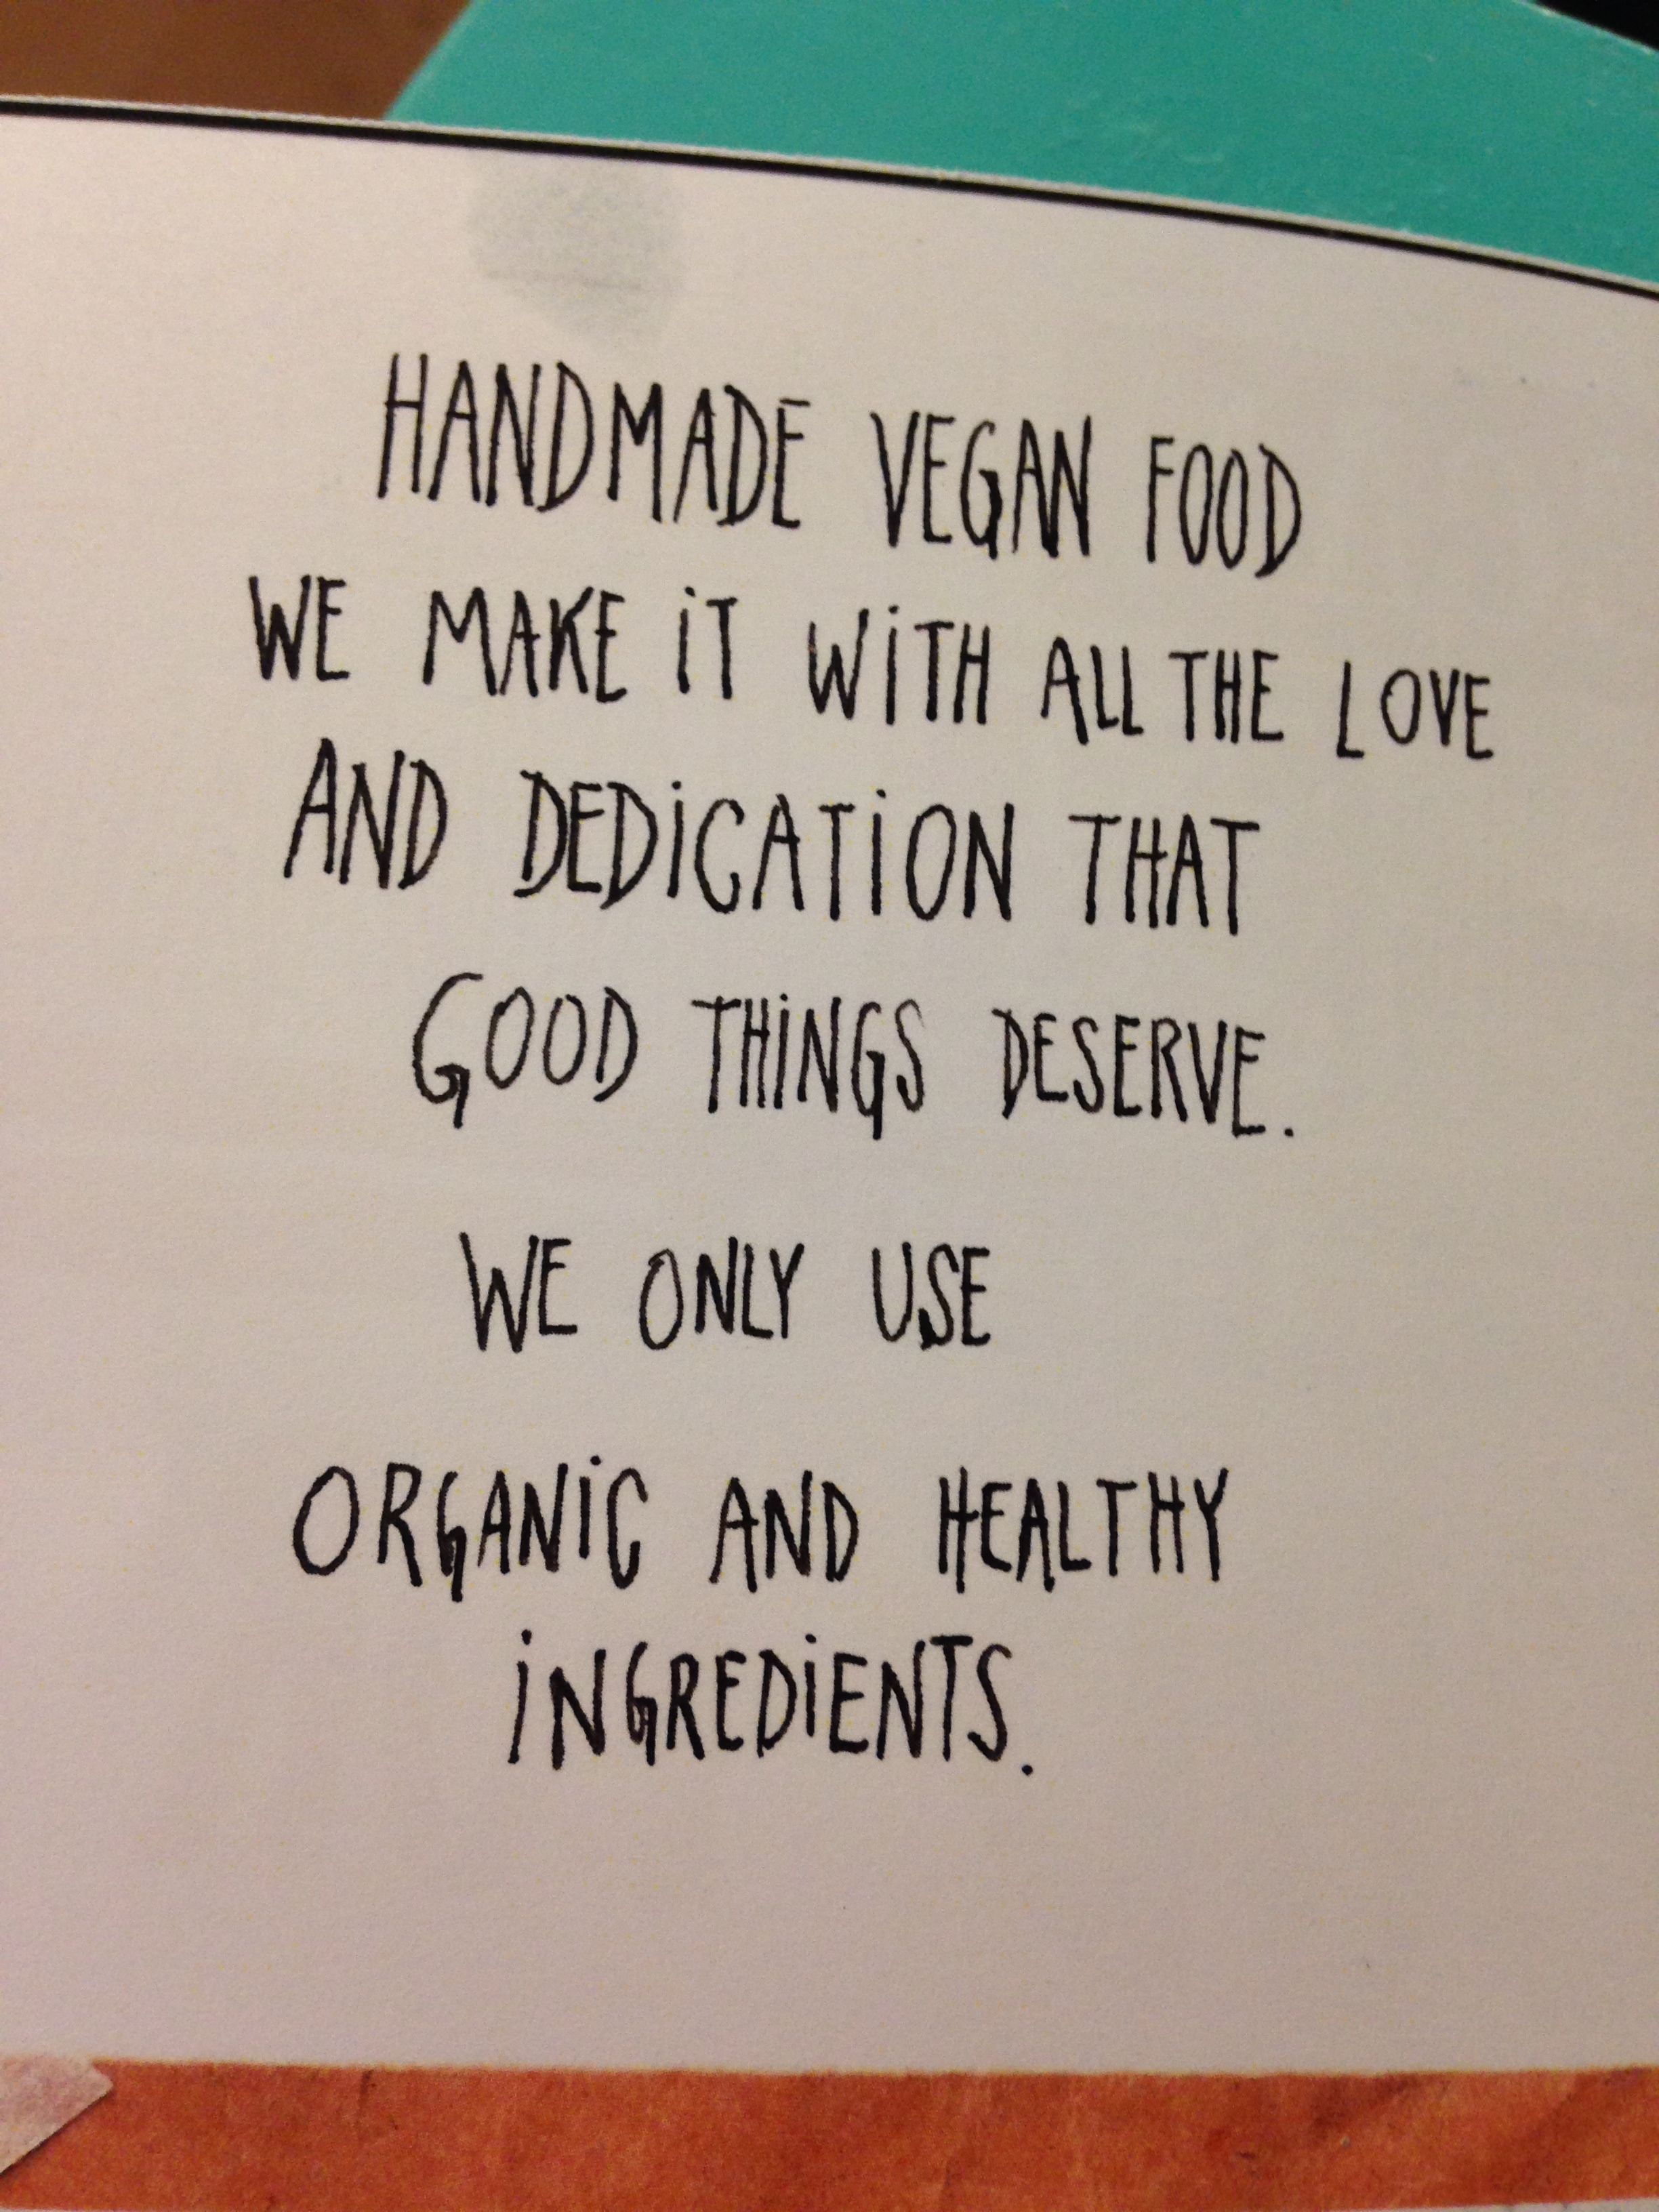 HANDMADE VEGAN FOOD
WE MAKE iT WiTH ALL THE LOVE
AND DEDiCATiON THAT
GOOD THiNGS DESERVE.
WE ONLY USE
ORGANiC AND HEALTHY
iNGREDiENTS.